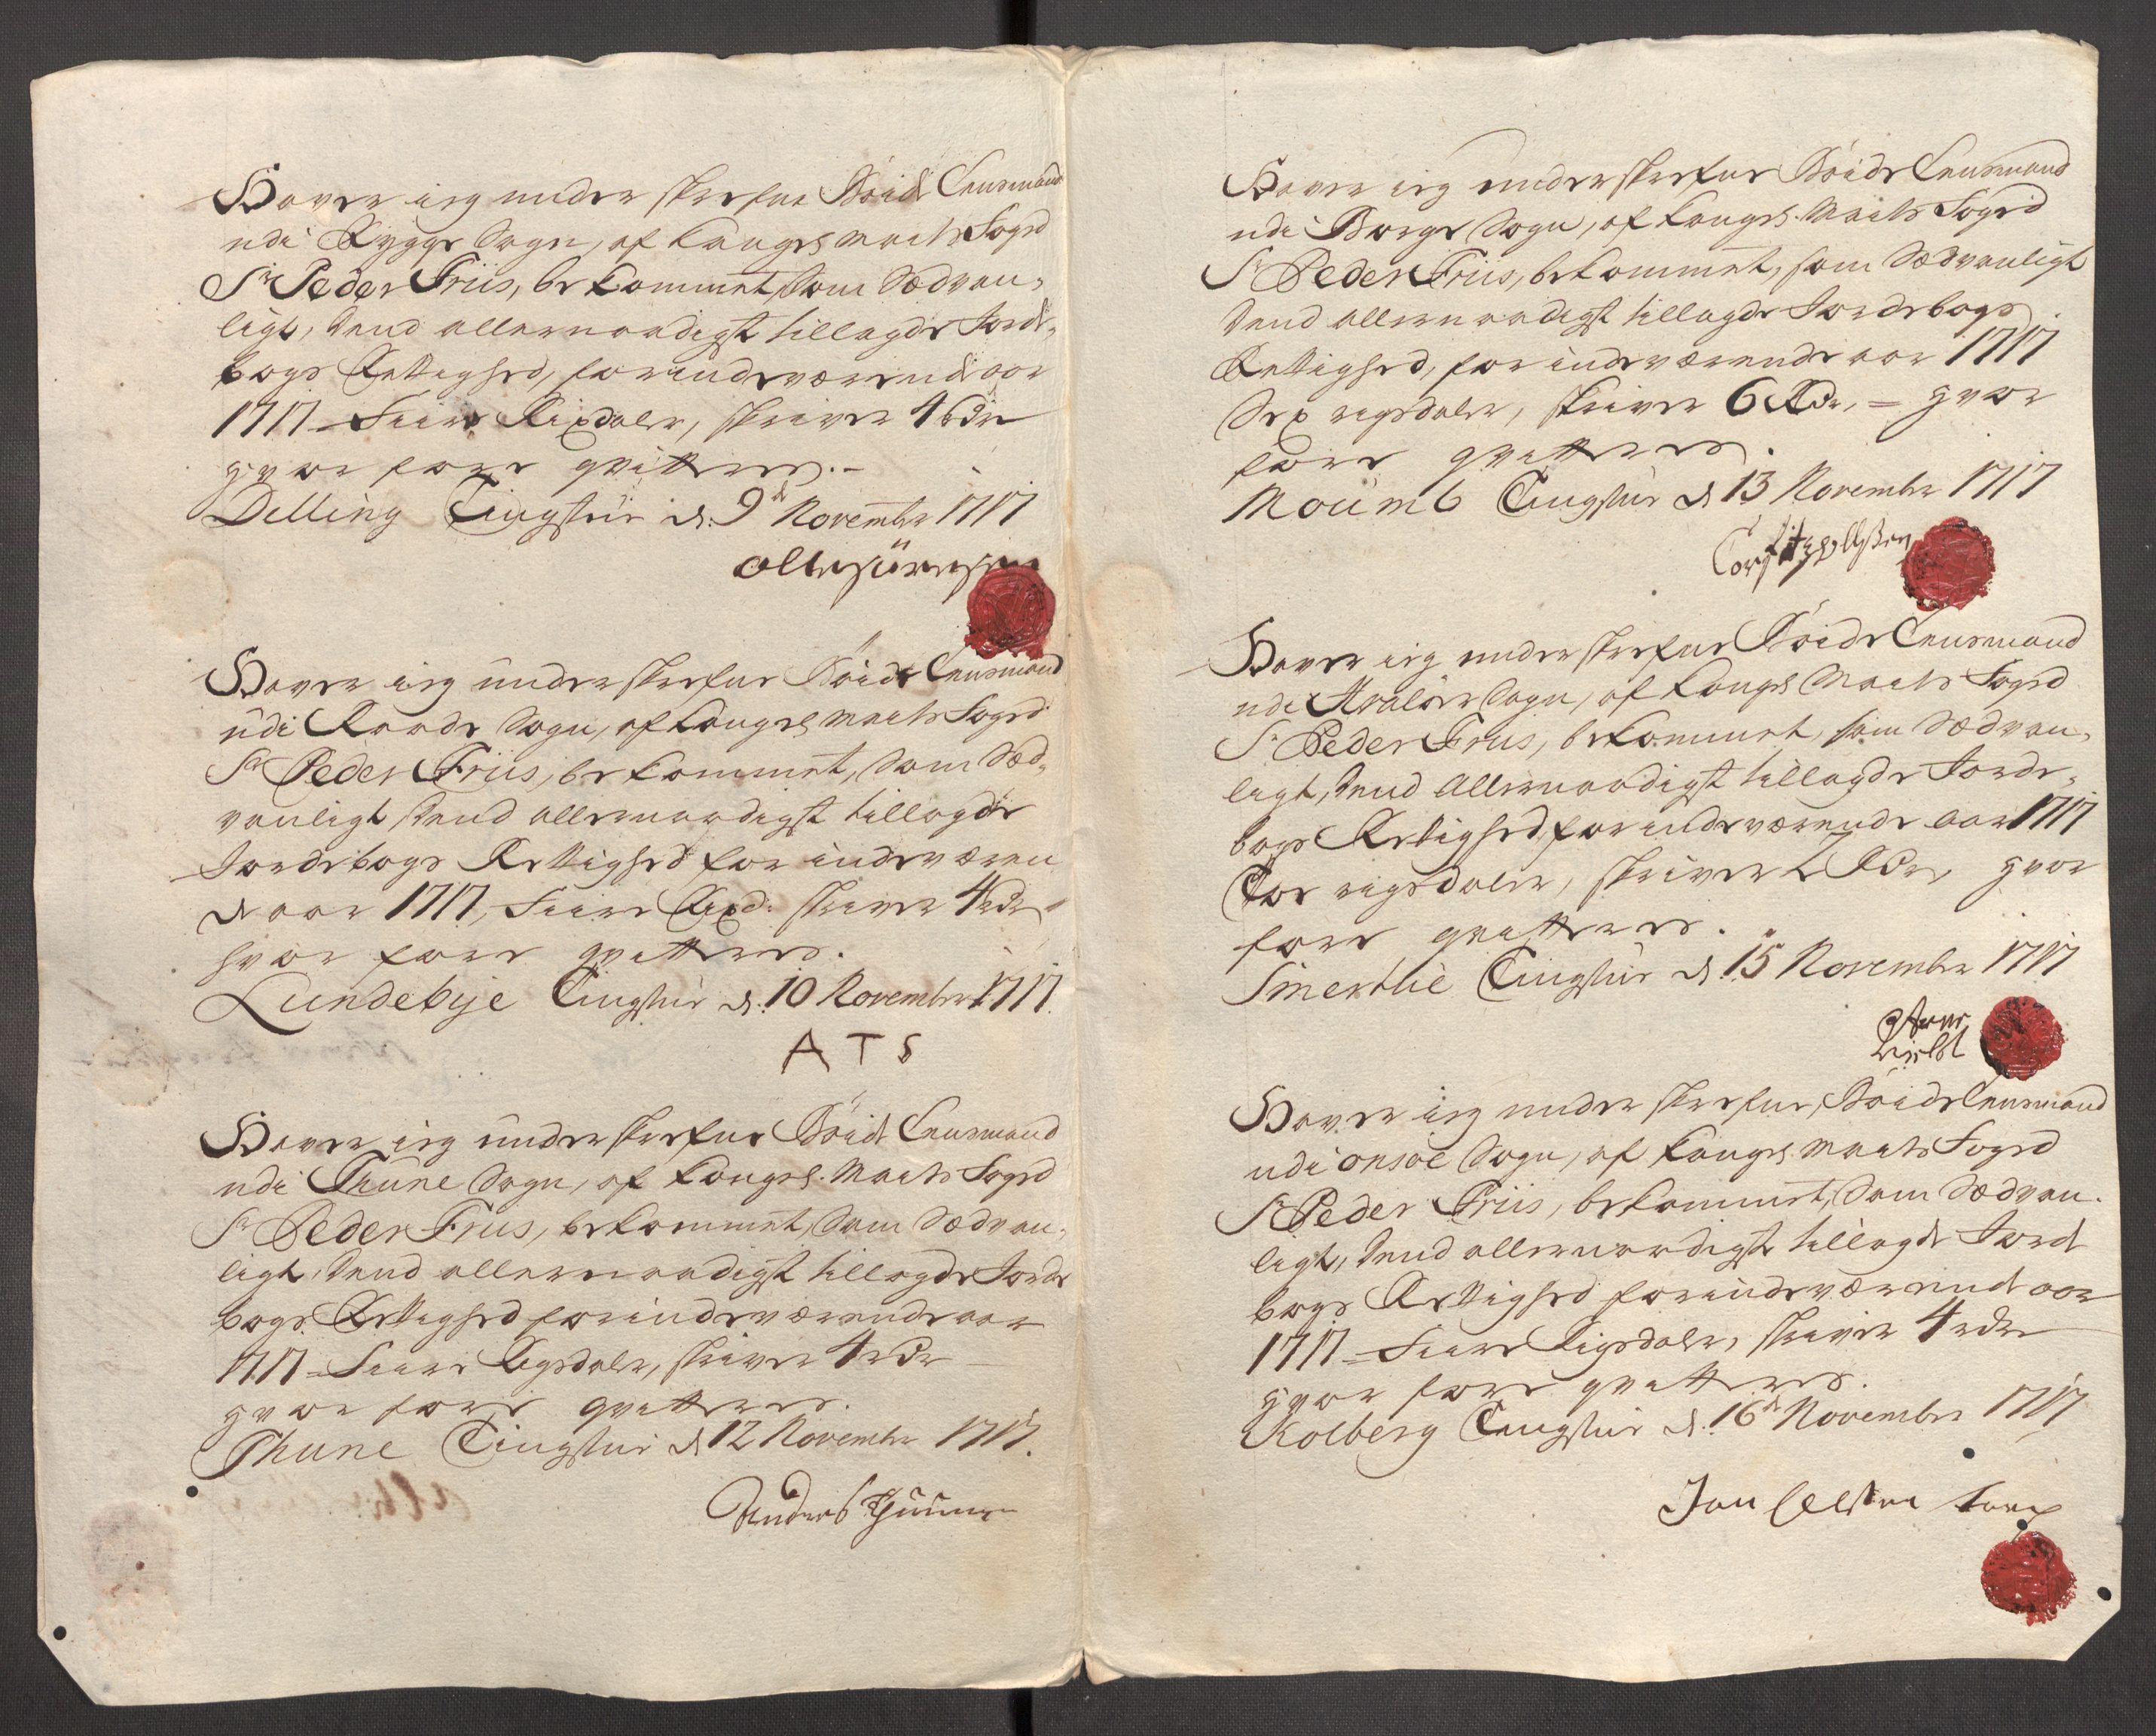 Haver ieg underskrefne Böide Lensmand
udi Rygge Sogn, af Kongel Maits Foged
Sr Peder Friis, bekommet, Som Sædvan-
ligt, dend allernaadigst tillagde Jorde-
bogs Rettighed, for indeværende aar
1717 Fiire Rixdaler, skriver 4 Rdr
hvor fore qvitteres.
Dilling Tingstue d. 9de Novembr 1717
Olle Jürensen
Haver ieg underskrefne Böide Lensmand
udi Raade Sogn, af Kongel Maits Foged
Sr Peder Friis, bekommet, Som Sæd-
vanligt dend allernaadigst tillagde
Jordebogs Rettighed for indeværen
de aar 1717, Fiire Rixd: skriver 4 Rdr
hvor fore qvitteres.
Lundebye Tingstue d. 10 Novembr 1717.
A T S
Haver ieg underskrefne Böide Lensmand
udi Thune Sogn, af Kongel. Maits Foged
Sr Peder Friis, bekommet, Som Sædvan-
ligt, dend allernaadigst tillagde Jorde
bogs Rettighed for indeværende aar
1717 Fiire Rigsdaler, skriver 4 Rdr
hvor fore qvitteres.
Thune Tingstue d 12 Novembr 1717.
Anders
Haver ieg underskrefne Böide Lensmand
udi Borge Sogn, af Kongel. Maits Foged
Sr Peder Friis, bekommet, som Sædvanligt
dend allernaadigst tillagde Jordebogs
Rettighed, for indeværende aar 1717
Sex rigsdaler, skriver 6 Rdr, = hvor
fore qvitteres.
Moumb Tingstue d 13 Novembr 1717
Haver ieg underskrefne Böide Lensmand
udi Hvaløer Sogn, af Kongel Maits Foged
Sr Peder Friis, bekommet, som Sædvan-
ligt, dend Allernaadigst tillagde Jorde-
bogs Rettighed, for indeværende aar 1717
Toe rigsdaler, skriver 2 Rdr, hvor
fore qvitteres.
Smertlie Tingstue d. 15 Novembr 1717
Haver ieg underskrefne, Böide Lensmand
udi Onsøe Sogn, af Kongel. Maits Foged
Sr Peder Friis, bekommet, Som Sædvan-
ligt, dend allernaadigst tillagde Jorde
bogs Rettighed for indeværende aar
1717 = Fiire Rigsdaler, skriver 4 Rdr
hvor fore qvitteres.
Kolberg Tingstue d. 16de Novembr 1717